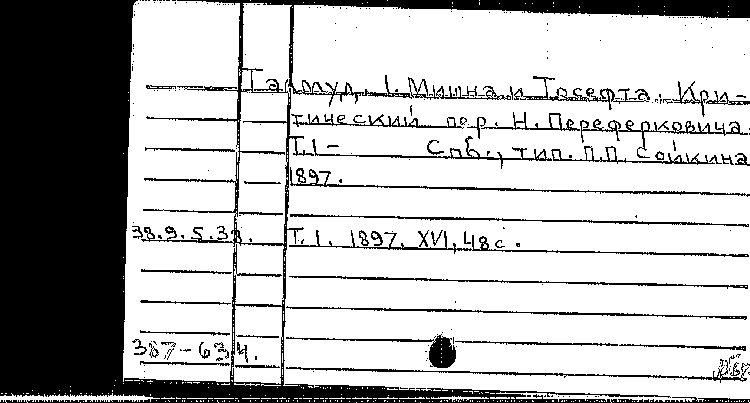 Талмуд. 1. Мишна и Тосефта. Кри-
тический пер. Н. Переферковича.
Т.1- Спб., тип. П.П. Сойкина
1897.
38.9.5.33. Т.1. 1897. XVI, 48 с.
387-634.